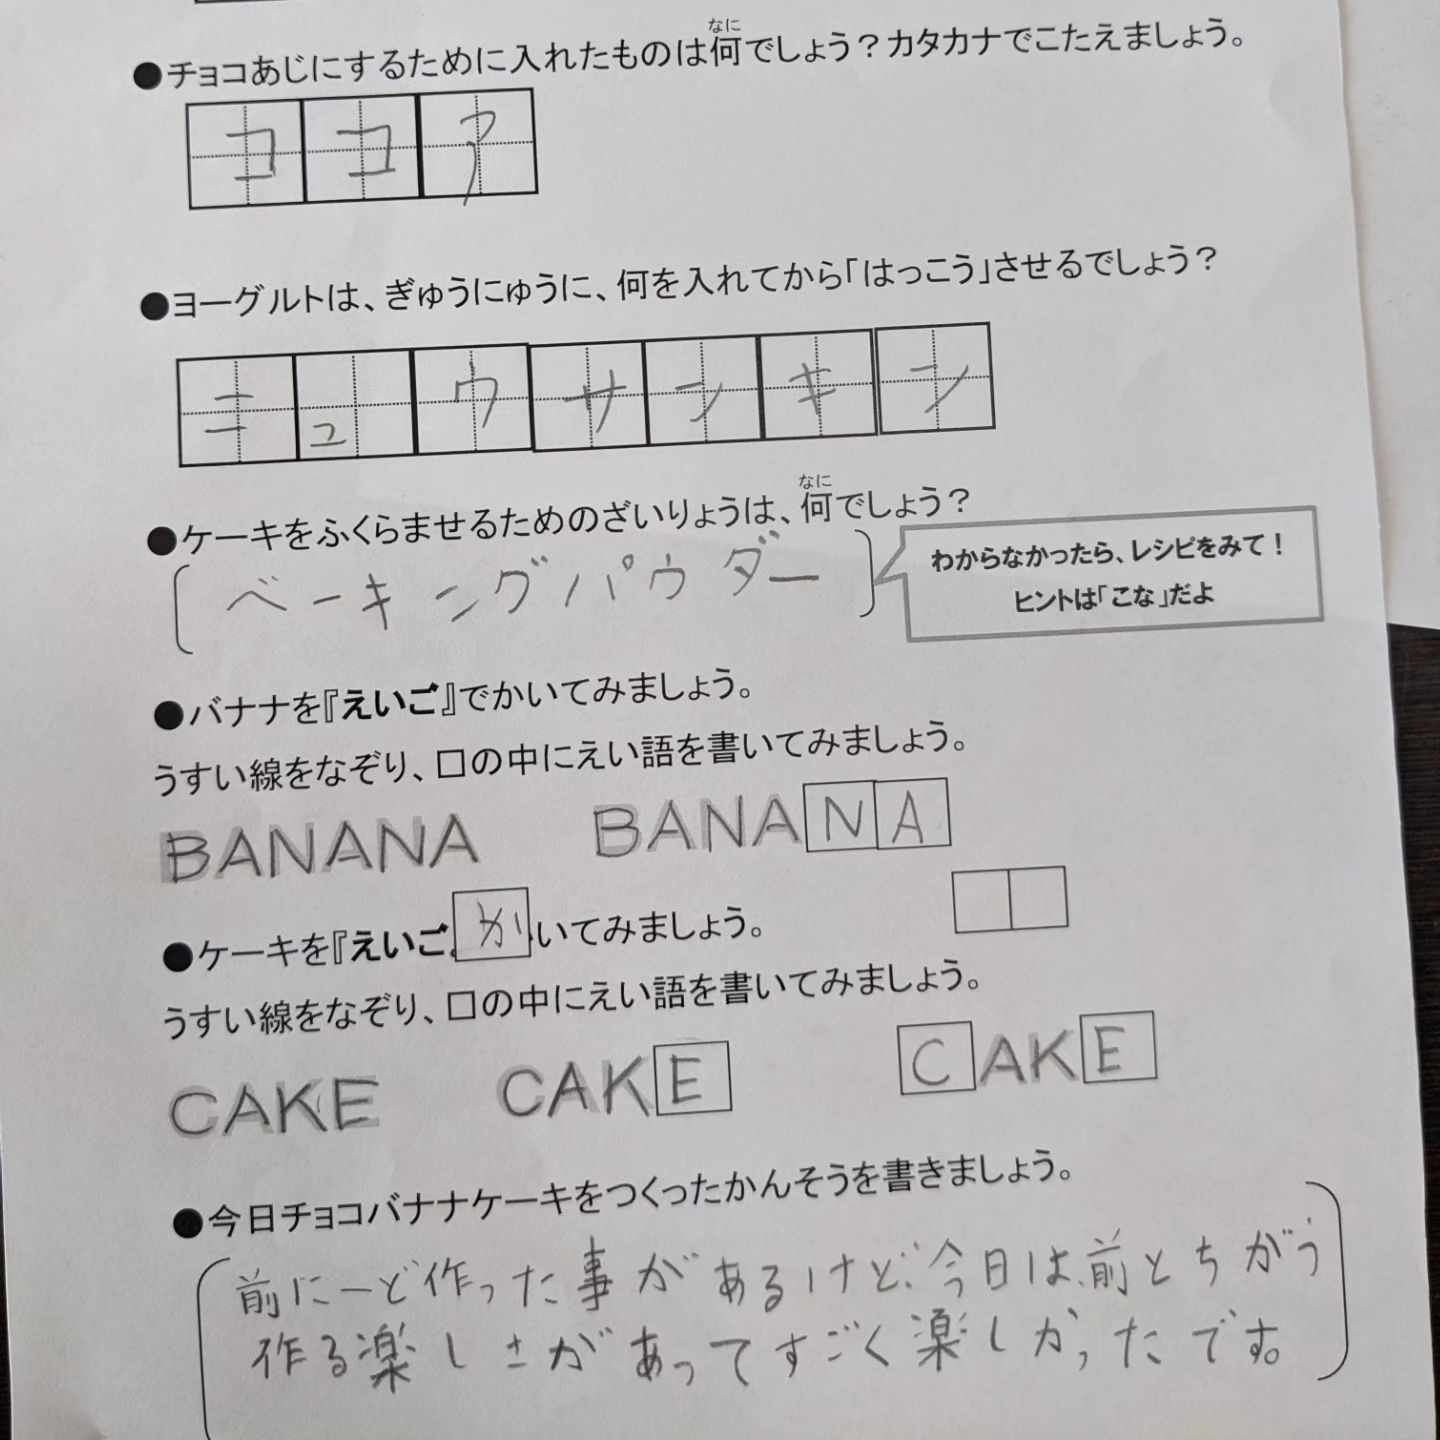 ●チョコあじにするために入れたものは何でしょう？カタカナでこたえましょう。
なに
ココア
●ヨーグルトは、ぎゅうにゅうに、何を入れてから「はっこう」させるでしょう？
ニュウサンキン
●ケーキをふくらませるためのざいりょうは、何でしょう？
なに
(ベーキングパウダー)
わからなかったら、レシピをみて！
ヒントは「こな」だよ
●バナナを『えいご』でかいてみましょう。
うすい線をなぞり、口の中にえい語を書いてみましょう。
BANANA BANANA
●ケーキを『えいごかいてみましょう。
うすい線をなぞり、口の中にえい語を書いてみましょう。
CAKE CAKE CAKE
●今日チョコバナナケーキをつくったかんそうを書きましょう。
前に一ど作った事があるけど、今日は、前とちがう
作る楽しさがあってすごく楽しかったです。